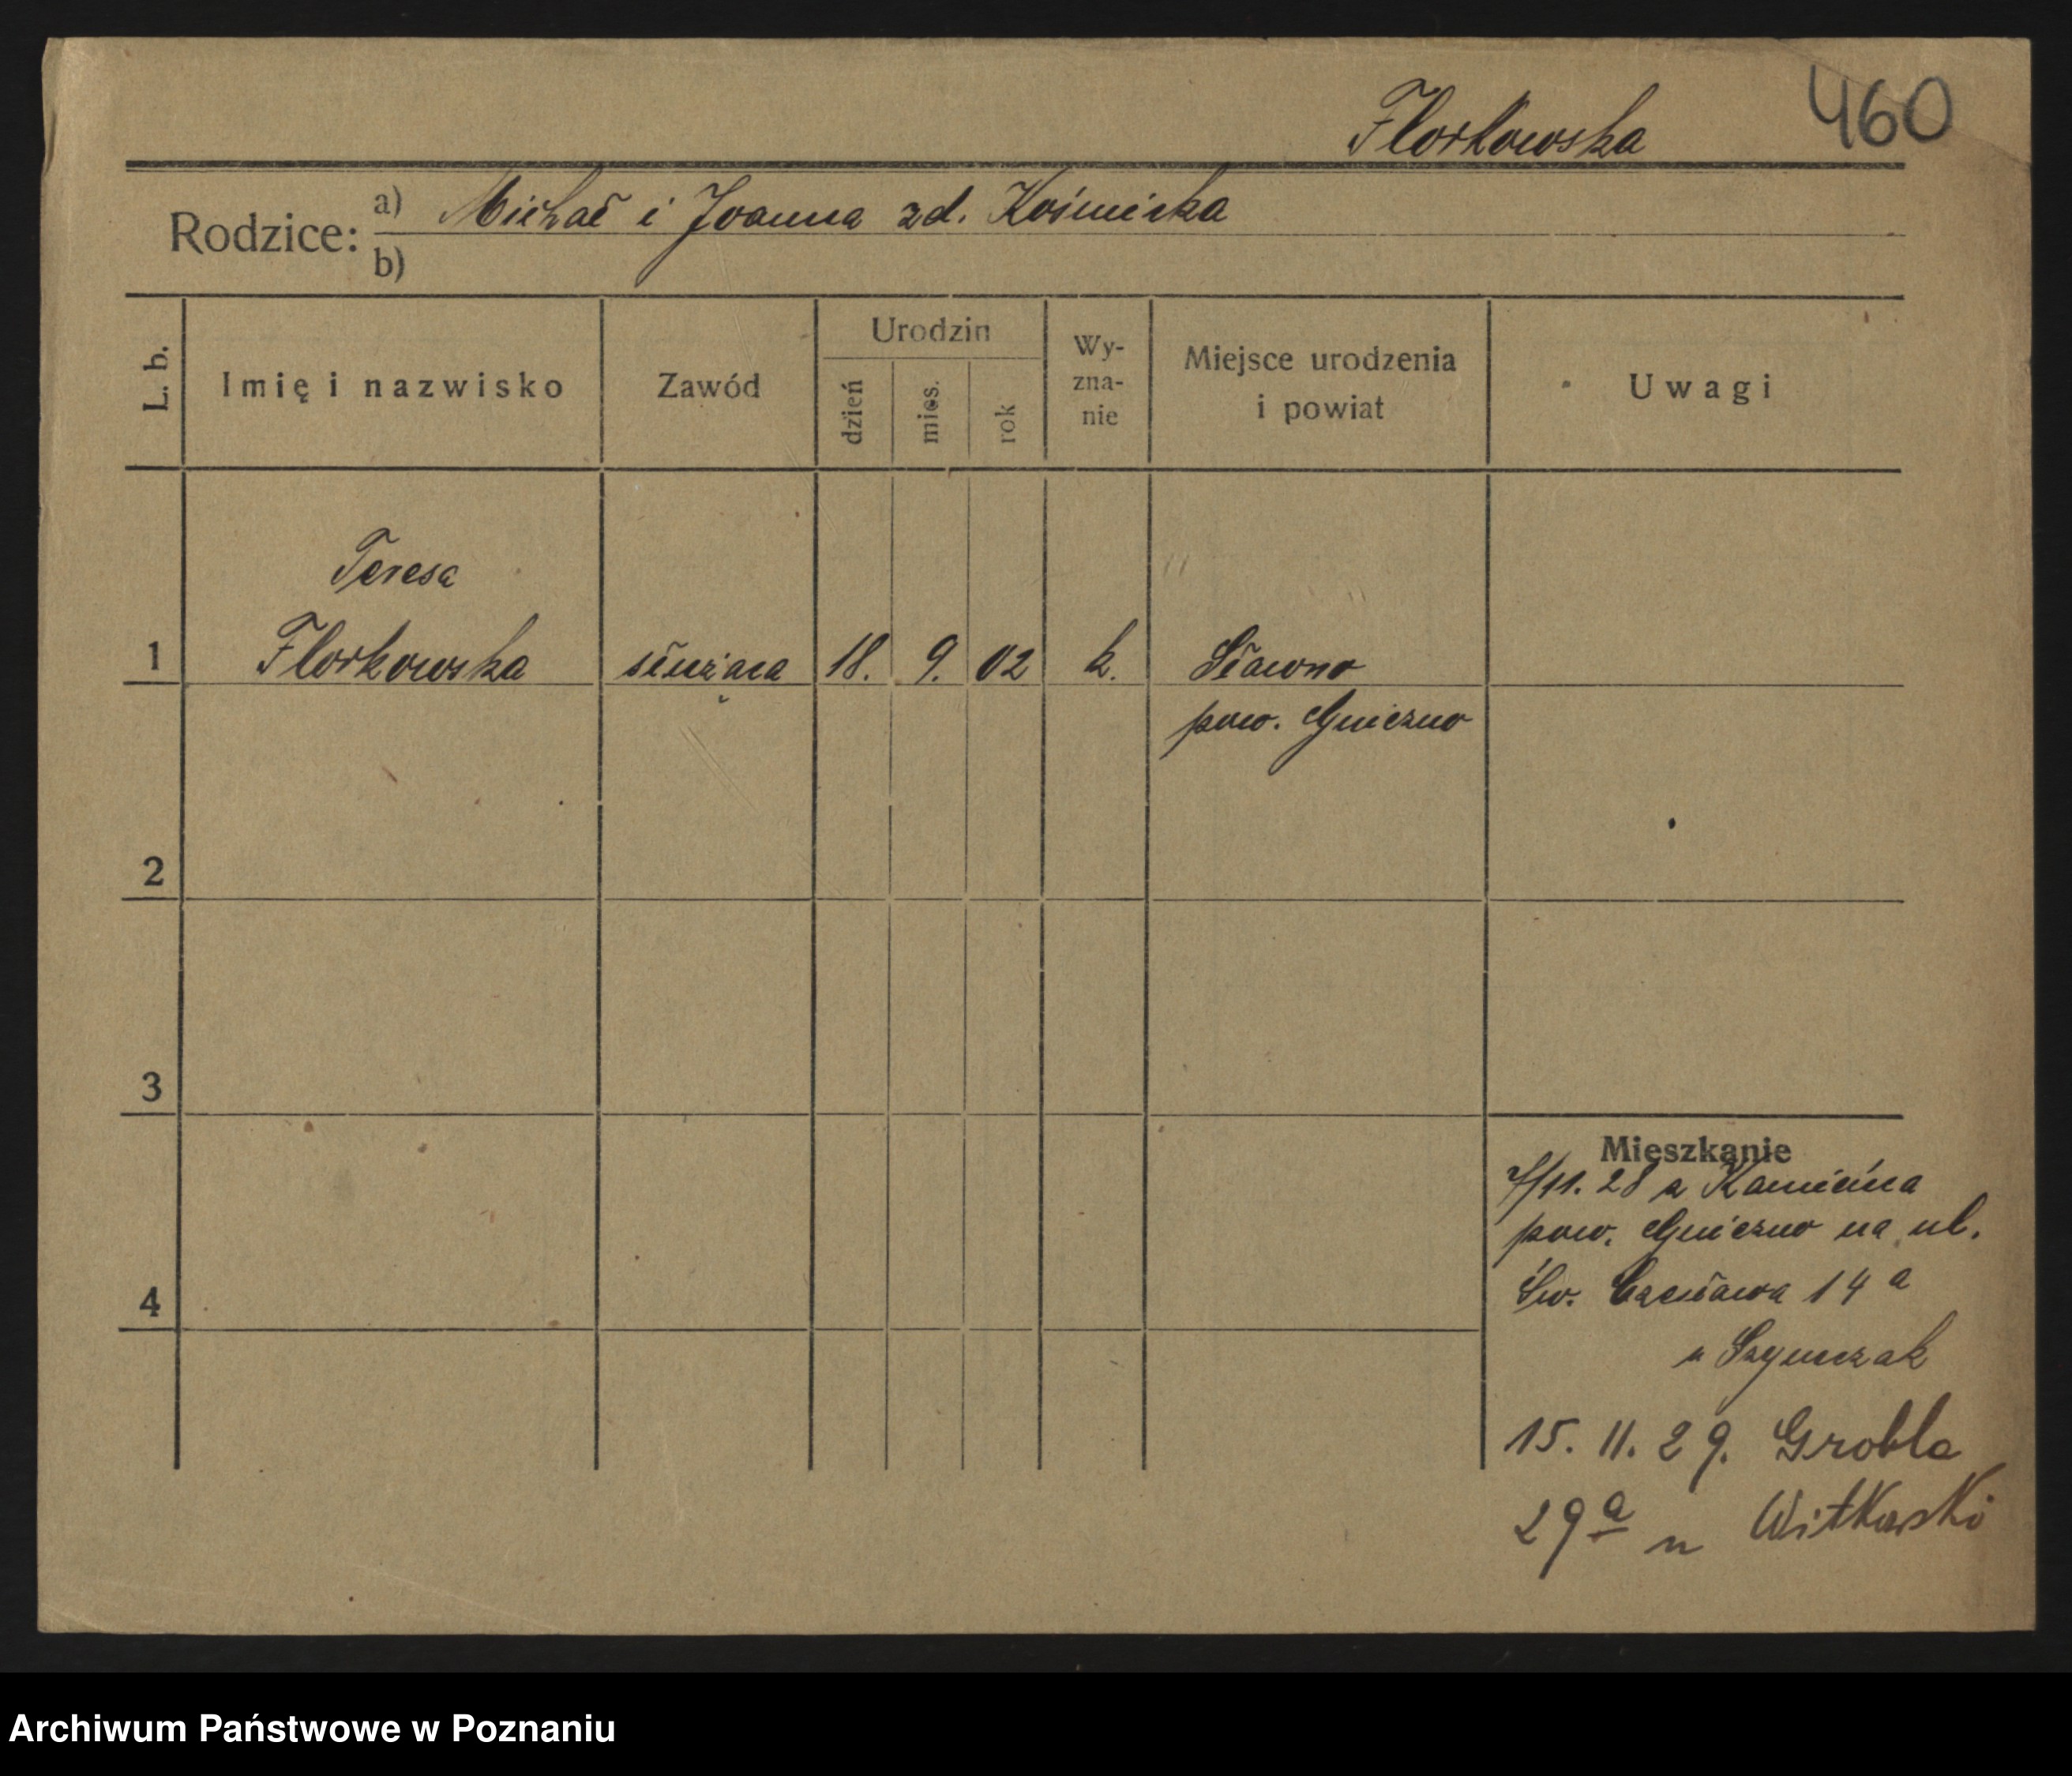 Florkowska 460
Rodzice: a) Michał i Joanna zd. Kośmicka
b)
L. b.
Imię i nazwisko
Zawód
Urodzin
dzień
mies.
rok
Wy-
zna-
nie
Miejsce urodzenia
i powiat
Uwagi
Teresa
1 Florkowska służąca 18. 9. 02 k. Sławno
pow. Gniezno
2
3
4
Mieszkanie
7/11. 28 z Kamieńca
pow. Gniezno na ul.
Św. Czesława 14 a
u Szymczak
15. 11. 29. Grobla
29 a u Witkowski
Archiwum Państwowe w Poznaniu